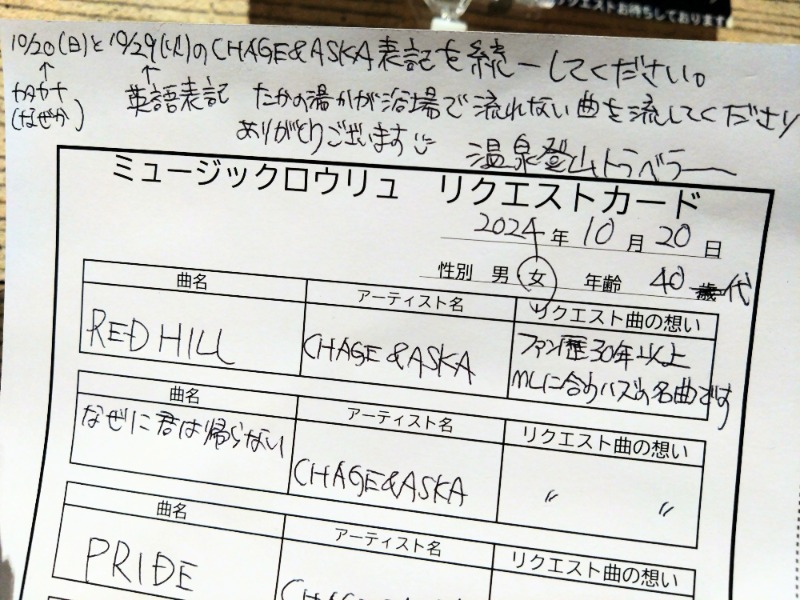 リクエストお待ちしております
10/20(日)と10/29(火)のCHAGE&ASKA表記を統一してください。
↑ ↑
カタカナ 英語表記 たかの湯かが浴場で流れない曲を流してください
(なぜか) ありがとうございます
温泉登山トラベラー
ミュージックロウリュ リクエストカード
2024年10月20日
性別 男 女 年齢 40歳代
曲名 アーティスト名 リクエスト曲の想い
RED HILL CHAGE&ASKA ファン歴30年以上
MLに合うハズの名曲です
曲名 アーティスト名 リクエスト曲の想い
なぜに君は帰らない CHAGE&ASKA 〃 〃
曲名 アーティスト名 リクエスト曲の想い
PRIDE CHAGE&ASKA